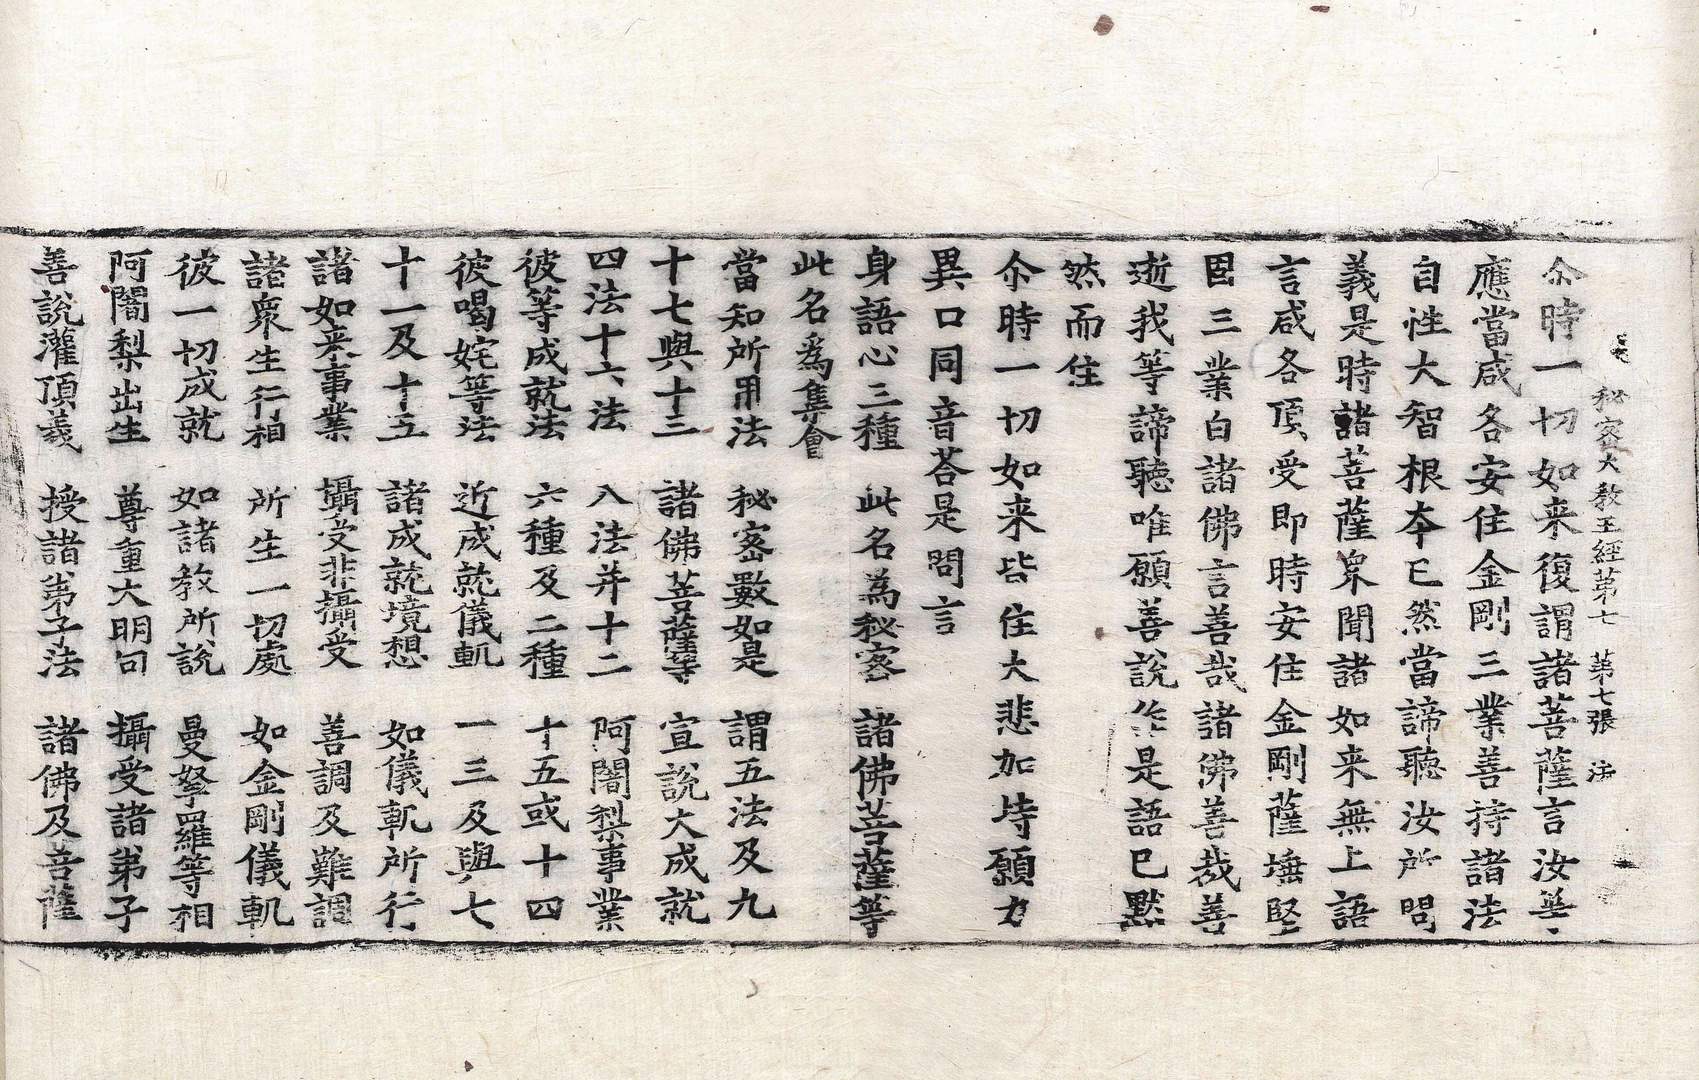 秘密大教王經第七　第七張
尒時一切如来復謂諸菩薩言汝等
應當咸各安住金剛三業善持諸法
自性大智根夲已然當諦聽汝所問
義是時諸菩薩衆聞諸如来無上語
言咸各頂受即時安住金剛薩埵堅
固三業白諸佛言善哉諸佛善哉善
逝我等諦聽唯願善說作是語已黙
然而住
尒時一切如来皆住大悲加持願力
異口同音荅是問言
身語心三種　此名為秘密　諸佛菩薩等
此名為集會
當知所用法　秘密數如是　謂五法及九
十七與十三　諸佛菩薩等　宣說大成就
四法十六法　八法并十二　阿闍梨事業
彼等成就法　六種及二種　十五或十四
彼喝姹等法　近成就儀軌　一三及與七
十一及十五　諸成就境想　如儀軌所行
諸如来事業　攝受非攝受　善調及難調
諸衆生行相　所生一切處　如金剛儀軌
彼一切成就　如諸教所說　曼拏羅等相
阿闍梨出生　尊重大明句　攝受諸弟子
善說灌頂義　授諸弟子法　諸佛及菩薩